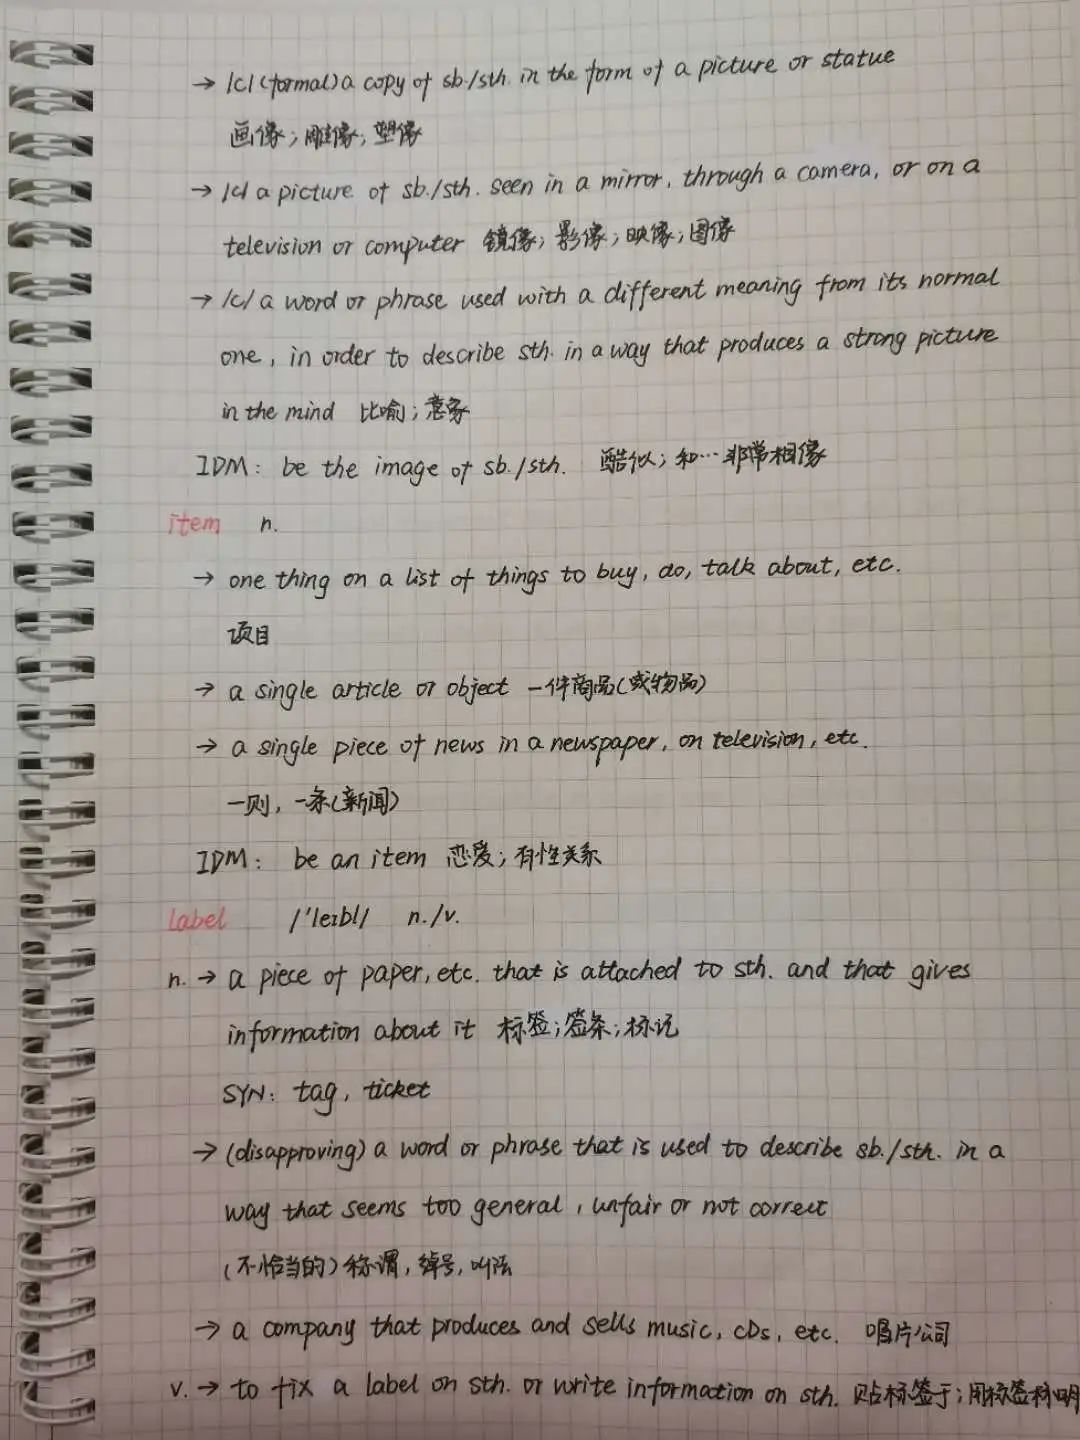 → /c/ (formal) a copy of sb./sth. in the form of a picture or statue
画像；雕像；塑像
→ /c/ a picture of sb./sth. seen in a mirror, through a camera, or on a
television or computer 镜像；影像；映像；图像
→ /c/ a word or phrase used with a different meaning from its normal
one, in order to describe sth. in a way that produces a strong picture
in the mind 比喻；意象
IDM: be the image of sb./sth. 酷似；和…非常相像
item n.
→ one thing on a list of things to buy, do, talk about, etc.
项目
→ a single article or object 一件商品(或物品)
→ a single piece of news in a newspaper, on television, etc.
一则，一条(新闻)
IDM: be an item 恋爱；有性关系
label /'leɪbl/ n./v.
n. → a piece of paper, etc. that is attached to sth. and that gives
information about it 标签；签条；标记
SYN: tag, ticket
→ (disapproving) a word or phrase that is used to describe sb./sth. in a
way that seems too general, unfair or not correct
(不恰当的)称谓，绰号，叫法
→ a company that produces and sells music, CDs, etc. 唱片公司
v. → to fix a label on sth. or write information on sth. 贴标签于；用标签标明